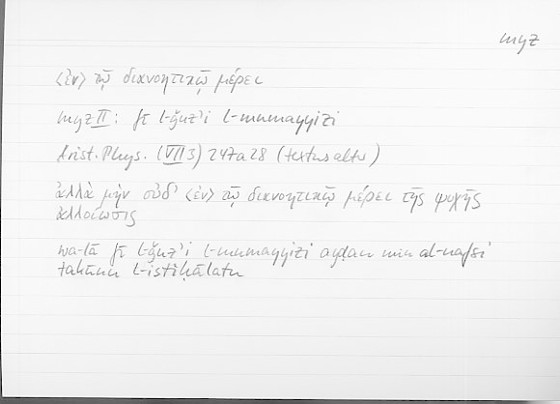 myz
〈ἐν〉 τῷ διανοητικῷ μέρει
myz II: fī l-ǧuz'i l-mumayyizi
Arist. Phys. (VII 3) 247a28 (textus alter)
ἀλλὰ μὴν οὐδ' 〈ἐν〉 τῷ διανοητικῷ μέρει τῆς ψυχῆς
ἀλλοίωσις
wa-lā fī l-ǧuz'i l-mumayyizi ayḍan min al-nafsi
takūnu l-istiḥālatu